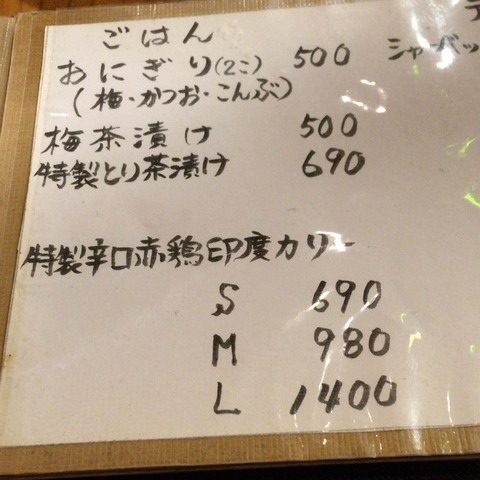 ごはん
おにぎり(2コ) 500
(梅・かつお・こんぶ)
梅茶漬け 500
特製とり茶漬け 690
特製辛口赤鶏印度カリー
S 690
M 980
L 1400
シャーベッ